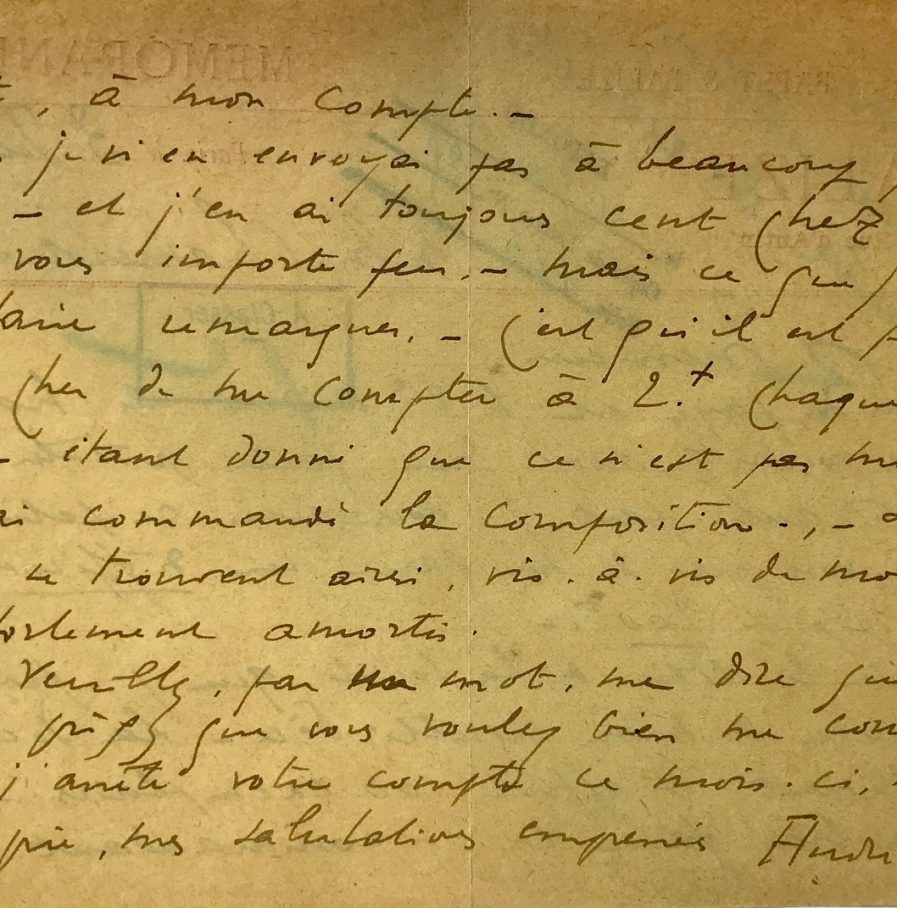 , à mon compte. -
je n'en envoyai pas à beaucoup
- et j'en ai toujours cent chez
vous importe peu. - mais ce que
faire remarquer. - c'est qu'il est
cher de me compter à 2.+ chaque
- étant donné que ce n'est pas
commandé la composition. , -
se trouvent ainsi, vis. à. vis de
fortement amortis.
Veuillez, par un mot, me dire
que vous voulez bien me
j'arrête votre compte ce mois. ci,
prie, mes salutations empressées